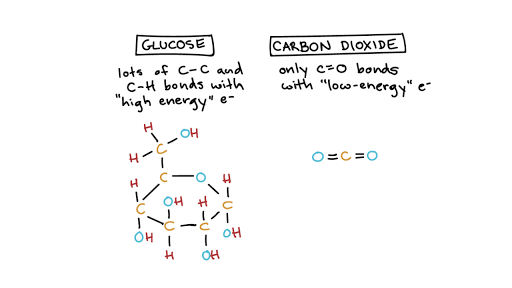 GLUCOSE
lots of C-C and
C-H bonds with
"high energy" e-
H
OH
H
C
C
O
H
H
C
OH
OH
C
H
H
C
OH
C
H
OH
CARBON DIOXIDE
only C=O bonds
with "low-energy" e-
O=C=O